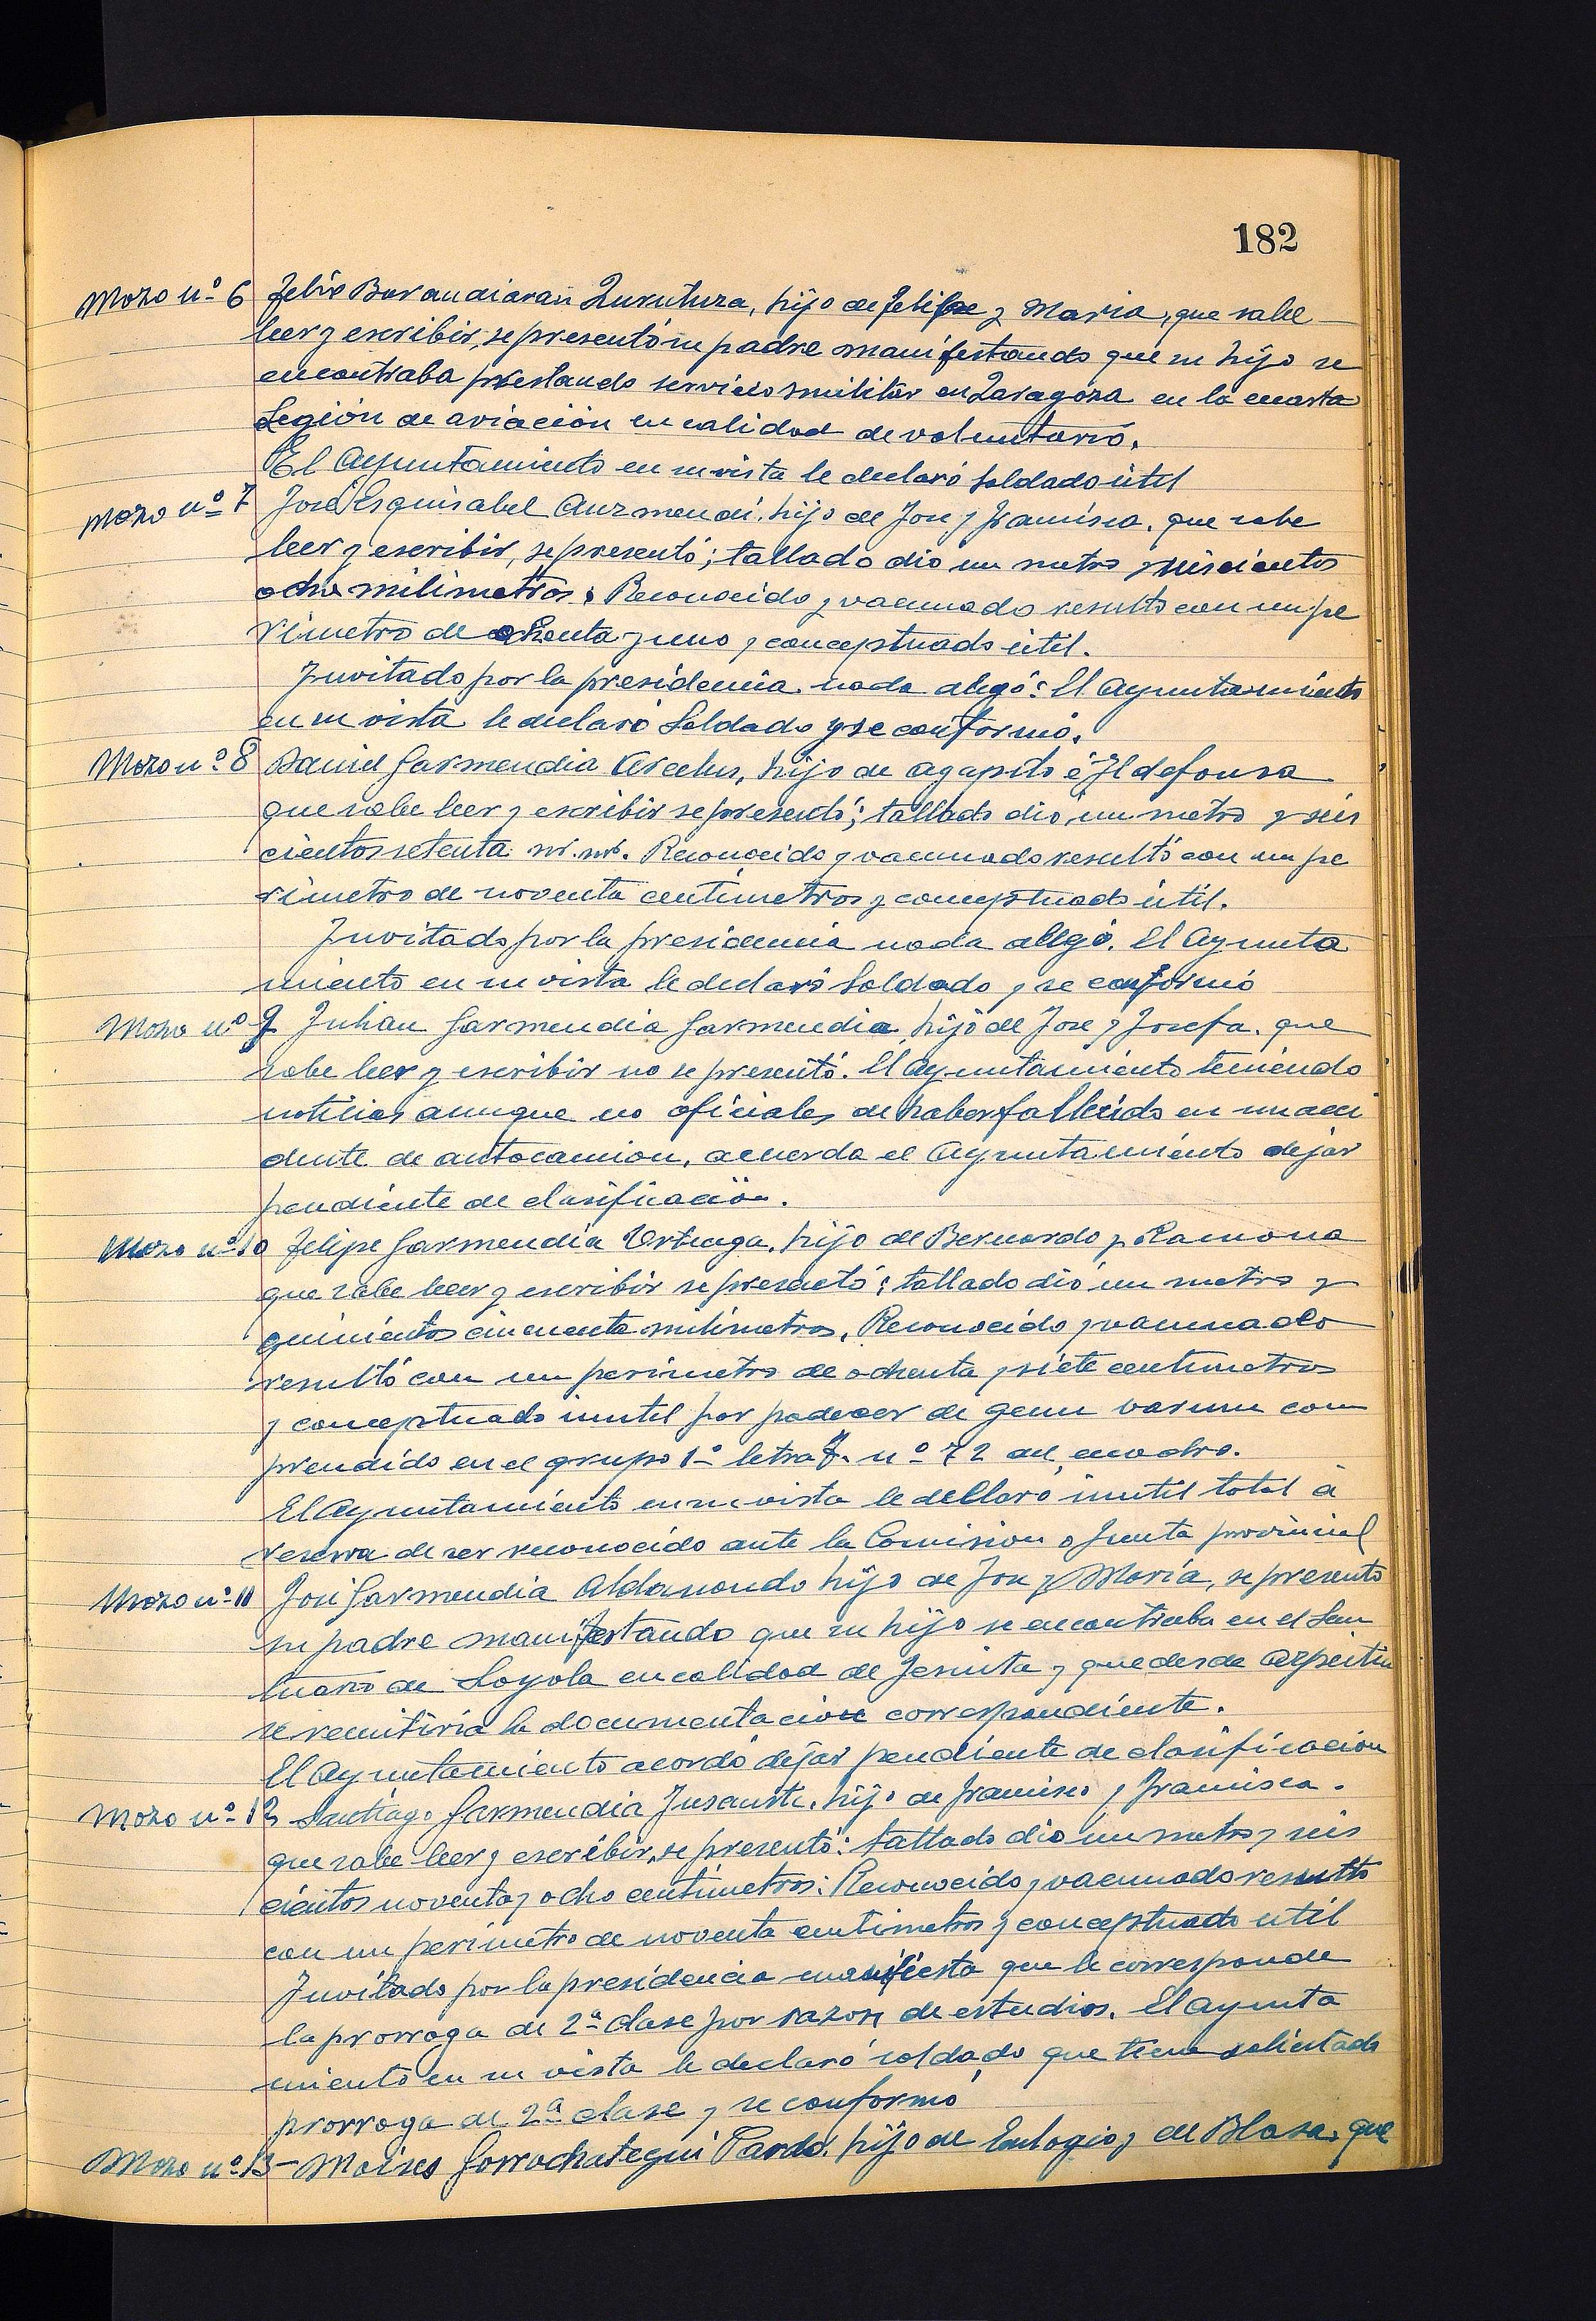 182
Mozo nº 6 Felix Barandiaran Zurutuza, hijo de Felipe y Maria, que sabe
leer y escribir, se presentó su padre manifestando que su hijo se
encontraba prestando servicio militar en Zaragoza en la cuarta
Legión de aviación en calidad de voluntario.
El Ayuntamiento en su vista le declaró Soldado útil
Mozo nº 7 José Esquisabel Auzmendi, hijo de Jose y Francisca, que sabe
leer y escribir, se presentó; tallado dio un metro y seiscientos
ocho milimetros; Reconocido y vacunado resulto con un pe
rimetro de ochenta y uno y conceptuado útil.
Invitado por la presidencia nada alegó: El Ayuntamiento
en su vista le declaró Soldado y se conformó.
Mozo nº 8 Daniel Garmendia Arcelus, hijo de Agapito é Ildefonsa
que sabe leer y escribir se presentó; tallado dio un metro y seis
cientos setenta m.m. Reconocido y vacunado resultó con un pe
rimetro de noventa centimetros y conceptuado útil.
Invitado por la presidencia nada allegó. El Ayunta
miento en su vista le declaró Soldado y se conformó
Mozo nº 9 Julian Garmendia Garmendia, hijo de Jose y Josefa, que
sabe leer y escribir no se presentó. El Ayuntamiento teniendo
noticias aunque no oficiales de haber fallecido en un acci
dente de autocamion, acuerda el Ayuntamiento dejar
pendiente de clasificación.
Mozo nº 10 Felipe Garmendia Urteaga, hijo de Bernardo y Ramona
que sabe leer y escribir se presentó; tallado dió un metro y
quinientos cincuenta milimetros, Reconocido y vacunado
resultó con un perimetro de ochenta y siete centimetros
y conceptuado inutil por padecer de genu varum com
prendido en el grupo 1º letra F. nº 72 del cuadro.
El Ayuntamiento en su vista le declaró inutil total á
reserva de ser reconocido ante la Comision o Junta provincial
Mozo nº 11 José Garmendia Aldanondo hijo de Jose y María, se presento
su padre manifestando que su hijo se encontraba en el San
tuario de Loyola en calidad de Jesuita y que desde Azpeitia
se remitiria la documentacion correspondiente.
El Ayuntamiento acordó dejar pendiente de clasificacion
Mozo nº 12 Santiago Garmendia Insausti, hijo de Francisco y Francisca.
que sabe leer y escribir, se presentó: tallado dio un metro y seis
cientos noventa y ocho centimetros: Reconocido y vacunado resulto
con un perimetro de noventa centimetros y conceptuado util
Invitado por la presidencia manifiesta que le corresponde
la prorroga de 2ª clase por razon de estudios. El Ayunta
miento en su vista le declaró soldado que tiene solicitada
prorroga de 2ª clase y se conformó
Mozo nº 13- Moises Gorrochategui Pardo, hijo de Eulogio y de Blasa, que